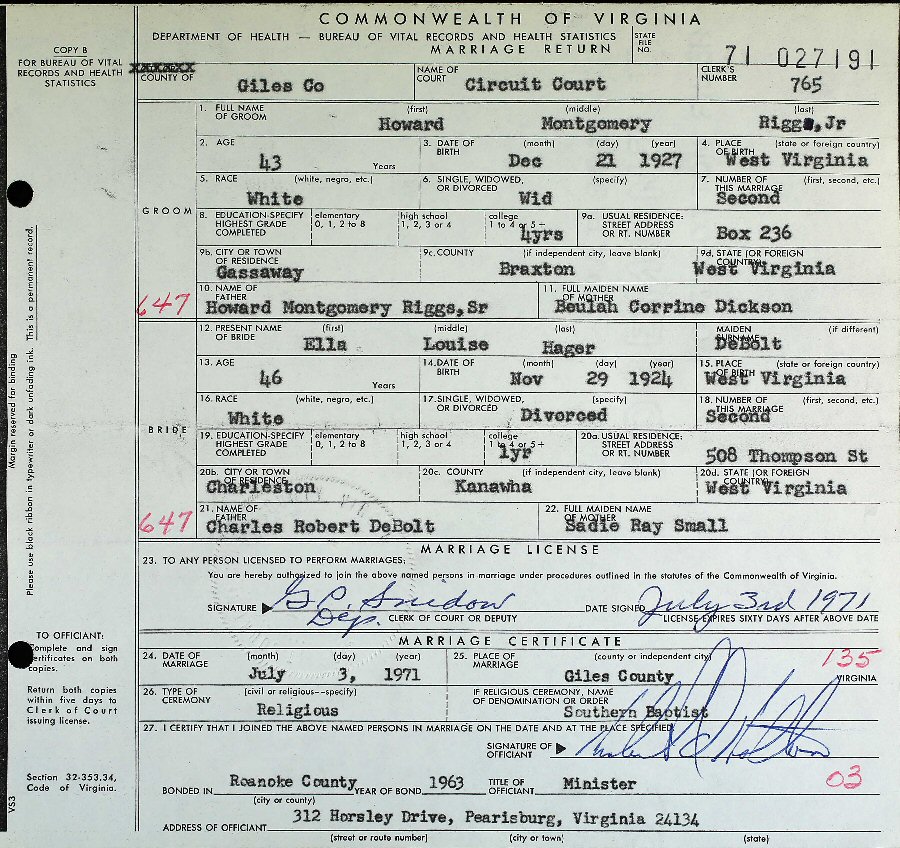 COMMONWEALTH OF VIRGINIA
DEPARTMENT OF HEALTH — BUREAU OF VITAL RECORDS AND HEALTH STATISTICS
MARRIAGE RETURN
STATE FILE NO. 71 027191
COPY B
FOR BUREAU OF VITAL
RECORDS AND HEALTH
STATISTICS
COUNTY OF Giles Co
NAME OF COURT Circuit Court
CLERK'S NUMBER 765
GROOM
1. FULL NAME OF GROOM (first) Howard (middle) Montgomery (last) Riggs, Jr
2. AGE 43 Years
3. DATE OF BIRTH (month) Dec (day) 21 (year) 1927
4. PLACE OF BIRTH (state or foreign country) West Virginia
5. RACE (white, negro, etc.) White
6. SINGLE, WIDOWED, OR DIVORCED (specify) Wid
7. NUMBER OF THIS MARRIAGE (first, second, etc.) Second
8. EDUCATION-SPECIFY HIGHEST GRADE COMPLETED elementary 0, 1, 2 to 8 high school 1, 2, 3 or 4 college 1 to 4 or 5+ 4yrs
9a. USUAL RESIDENCE: STREET ADDRESS OR RT. NUMBER Box 236
9b. CITY OR TOWN OF RESIDENCE Gassaway
9c. COUNTY (if independent city, leave blank) Braxton
9d. STATE (OR FOREIGN COUNTRY) West Virginia
647
10. NAME OF FATHER Howard Montgomery Riggs,Sr
11. FULL MAIDEN NAME OF MOTHER Beulah Corrine Dickson
BRIDE
12. PRESENT NAME OF BRIDE (first) Ella (middle) Louise (last) Hager
MAIDEN SURNAME (if different) DeBolt
13. AGE 46 Years
14. DATE OF BIRTH (month) Nov (day) 29 (year) 1924
15. PLACE OF BIRTH (state or foreign country) West Virginia
16. RACE (white, negro, etc.) White
17. SINGLE, WIDOWED, OR DIVORCED (specify) Divorced
18. NUMBER OF THIS MARRIAGE (first, second, etc.) Second
19. EDUCATION-SPECIFY HIGHEST GRADE COMPLETED elementary 0, 1, 2 to 8 high school 1, 2, 3 or 4 college 1 to 4 or 5+ 1yr
20a. USUAL RESIDENCE: STREET ADDRESS OR RT. NUMBER 508 Thompson St
20b. CITY OR TOWN OF RESIDENCE Charleston
20c. COUNTY (if independent city, leave blank) Kanawha
20d. STATE (OR FOREIGN COUNTRY) West Virginia
647
21. NAME OF FATHER Charles Robert DeBolt
22. FULL MAIDEN NAME OF MOTHER Sadie Ray Small
MARRIAGE LICENSE
23. TO ANY PERSON LICENSED TO PERFORM MARRIAGES:
You are hereby authorized to join the above named persons in marriage under procedures outlined in the statutes of the Commonwealth of Virginia.
SIGNATURE Snidow DATE SIGNED July 3rd 1971
Dep. CLERK OF COURT OR DEPUTY LICENSE EXPIRES SIXTY DAYS AFTER ABOVE DATE
MARRIAGE CERTIFICATE
24. DATE OF MARRIAGE (month) July (day) 3, (year) 1971
25. PLACE OF MARRIAGE (county or independent city) Giles County VIRGINIA
135
26. TYPE OF CEREMONY (civil or religious--specify) Religious
IF RELIGIOUS CEREMONY, NAME OF DENOMINATION OR ORDER Southern Baptist
27. I CERTIFY THAT I JOINED THE ABOVE NAMED PERSONS IN MARRIAGE ON THE DATE AND AT THE PLACE SPECIFIED.
SIGNATURE OF OFFICIANT
03
BONDED IN Roanoke County (city or county) YEAR OF BOND 1963 TITLE OF OFFICIANT Minister
ADDRESS OF OFFICIANT 312 Horsley Drive, Pearisburg, Virginia 24134
(street or route number) (city or town) (state)
Margin reserved for binding
Please use black ribbon in typewriter or dark unfading ink. This is a permanent record.
TO OFFICIANT:
Complete and sign
certificates on both
copies.
Return both copies
within five days to
Clerk of Court
issuing license.
Section 32-353.34,
Code of Virginia.
VS3